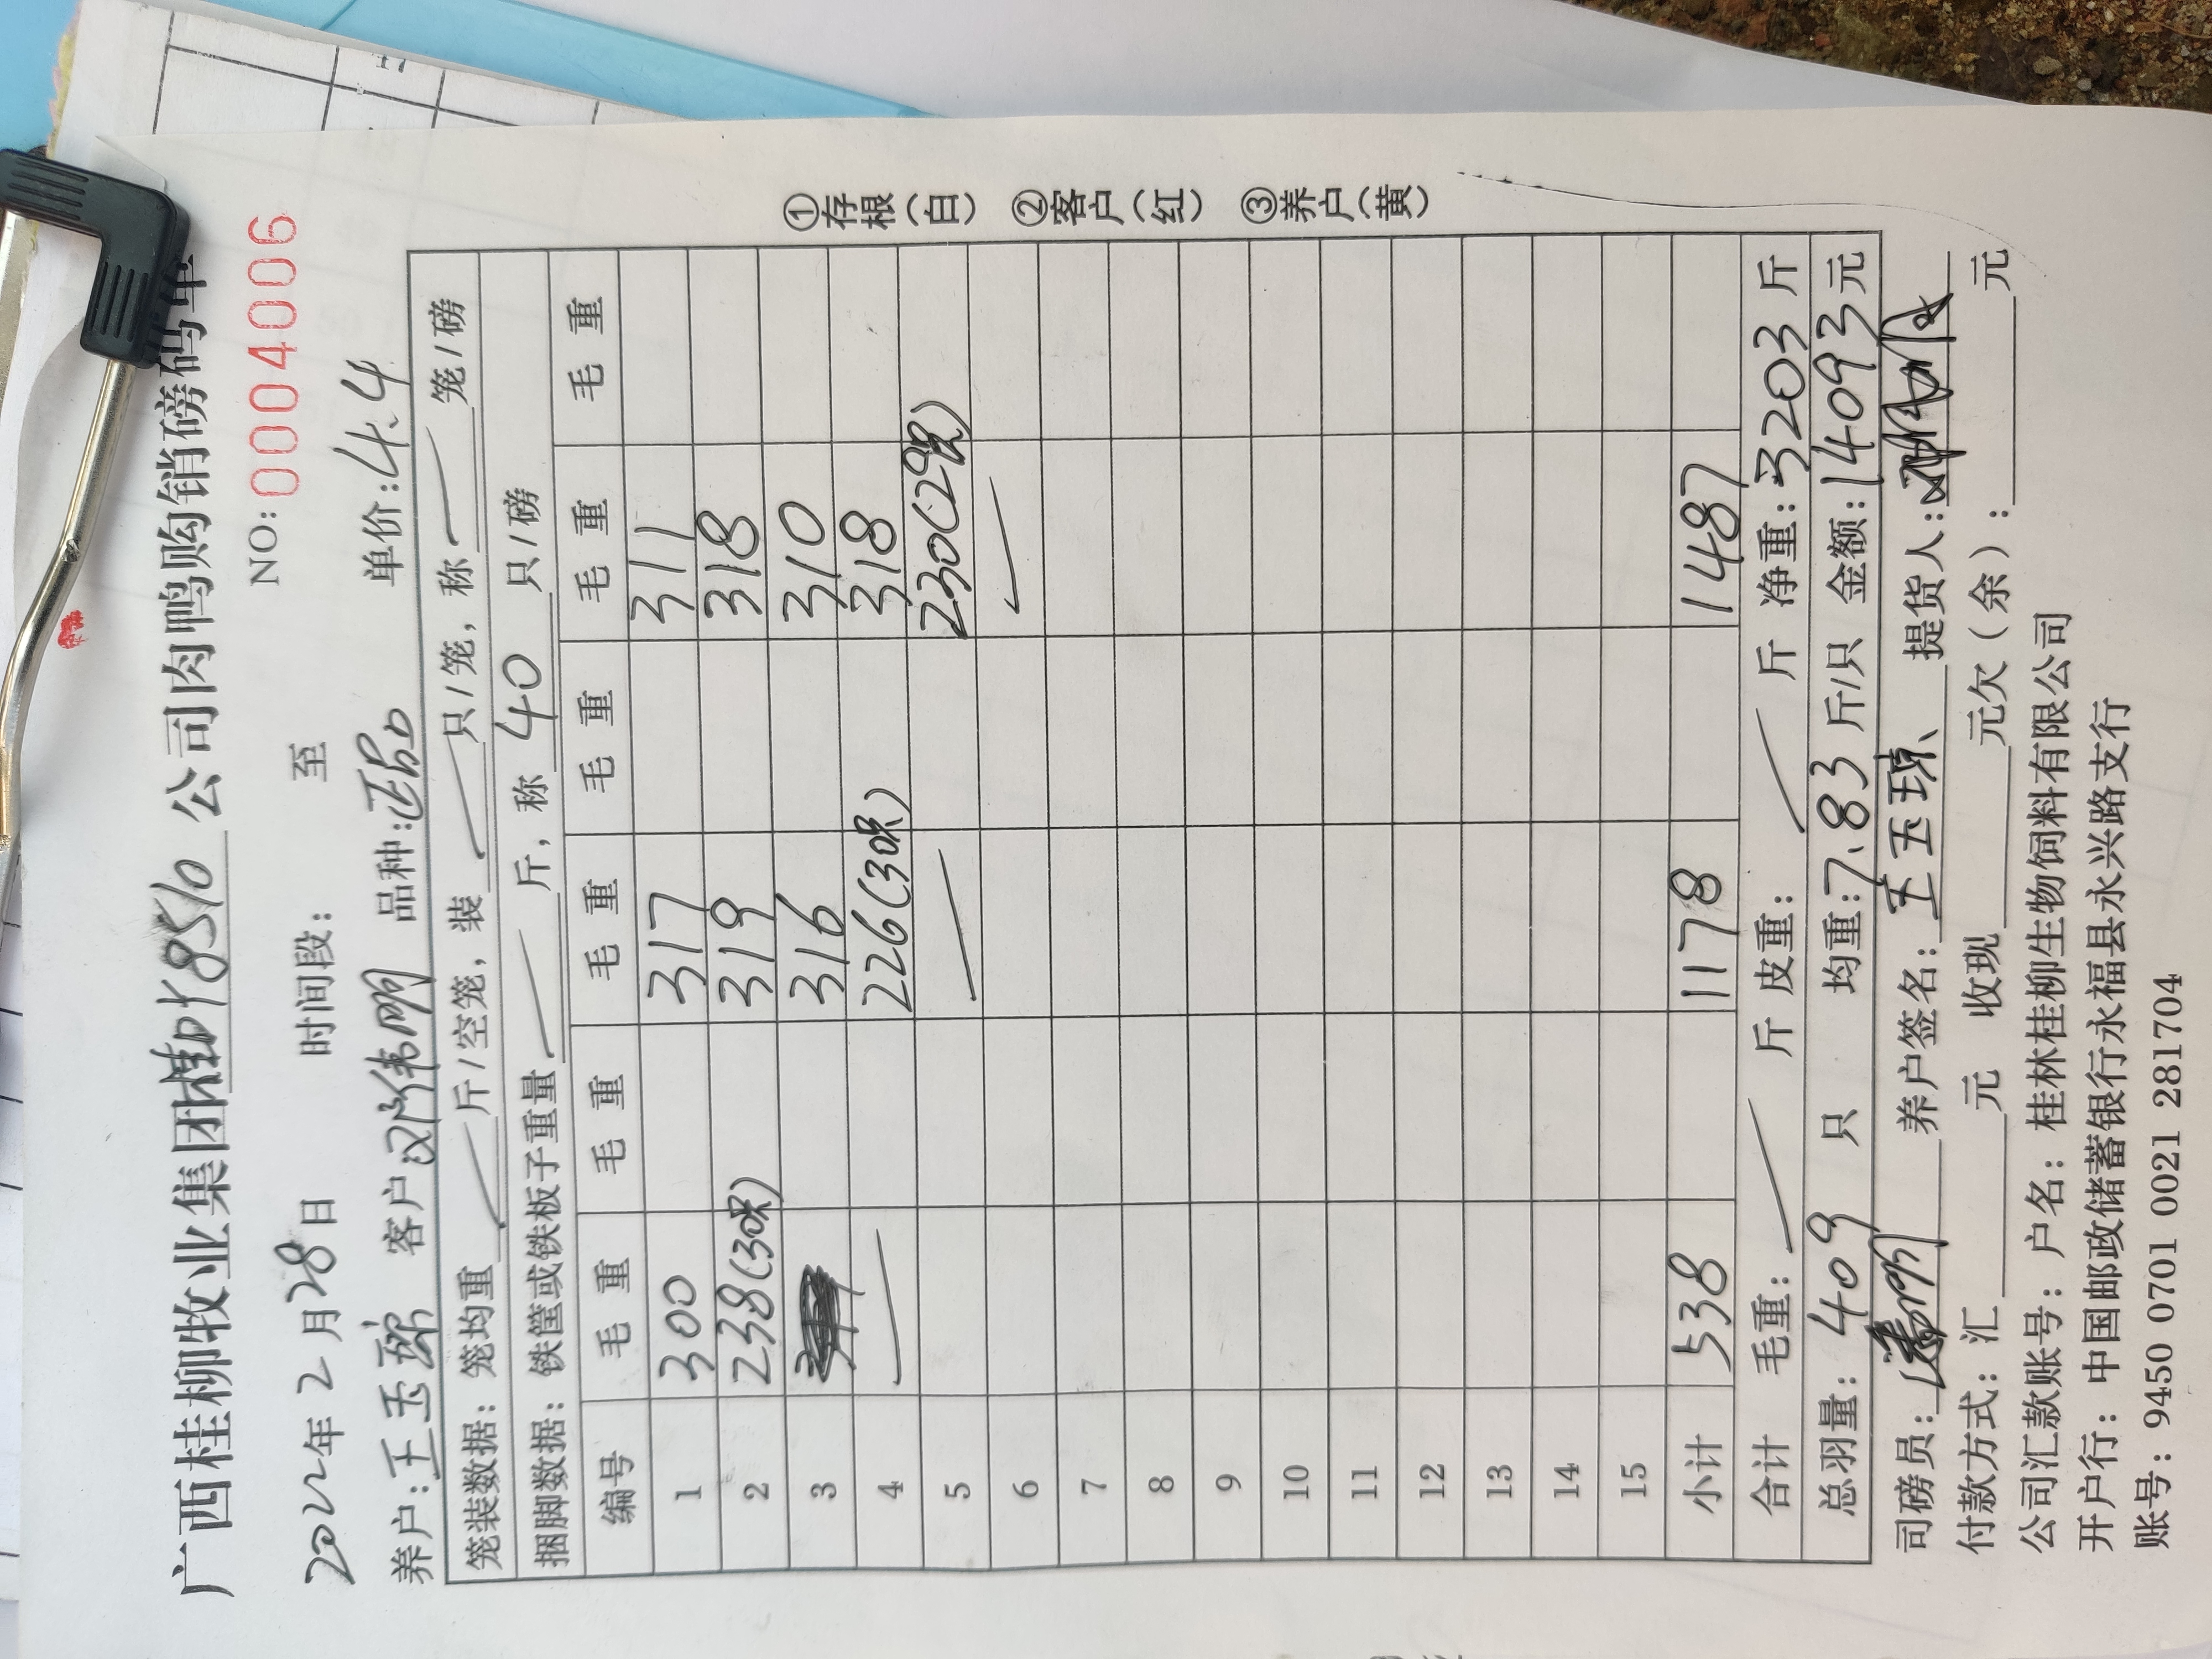 广西桂柳牧业集团桂叶8510公司肉鸭购销磅码单
NO: 0004006
2022年2月28日 时间段: 至
养户: 王玉琼 客户 邓伟明 品种: 正品 单价: 4.4
笼装数据: 笼均重 斤/空笼, 装 只/笼, 称 笼/磅
捆脚数据: 铁筐或铁板子重量 斤, 称 40 只/磅
编号 毛重 毛重 毛重 毛重 毛重 毛重
1 300 317 311
2 238(30只) 319 318
3 316 310
4 226(30只) 318
5 230(29只)
6
7
8
9
10
11
12
13
14
15
小计 538 1178 1487
合计 毛重: 斤 皮重: 斤 净重: 3203 斤
总羽量: 409 只 均重: 7.83 斤/只 金额: 14093元
司磅员: 养户签名: 王玉琼 提货人:
付款方式: 汇 元 收现 元欠(余): 元
公司汇款账号: 户名: 桂林桂柳生物饲料有限公司
开户行: 中国邮政储蓄银行永福县永兴路支行
账号: 9450 0701 0021 281704
①存根(白) ②客户(红) ③养户(黄)